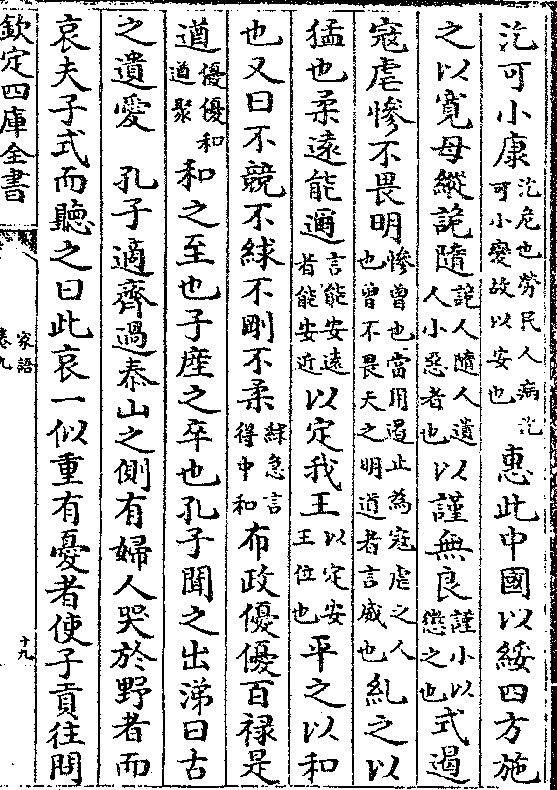 汔可小康汔危也勞民人病汔可小變故以安也惠此中國以綏四方施
之以寛毋縱詭隨詭人隨人遺人小惡者也以謹無良謹小以懲之也式遏
寇虐慘不畏明慘曽也當用遏止為寇虐之人也曽不畏天之明道者言威也糾之以
猛也柔遠能邇言能安遠者能安近以定我王以定安王位也平之以和
也又曰不競不絿不剛不柔絿急言得中和布政優優百禄是
遒優優和遒聚和之至也子産之卒也孔子聞之出涕曰古
之遺愛 孔子適齊過泰山之側有婦人哭於野者而
哀夫子式而聽之曰此哀一似重有憂者使子貢往問
欽定四庫全書
家語
卷九
十九